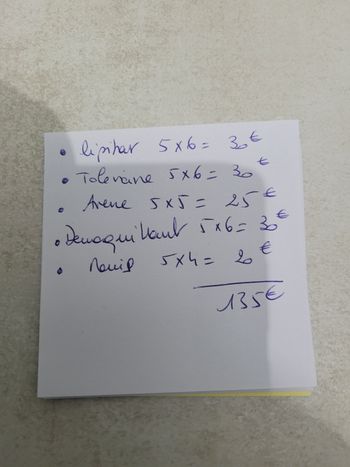 • Lipikar 5x6= 30€
• Toleriane 5x6= 30€
• Avene 5x5= 25€
• Demaquillant 5x6= 30€
• 5x4= 20€
135€